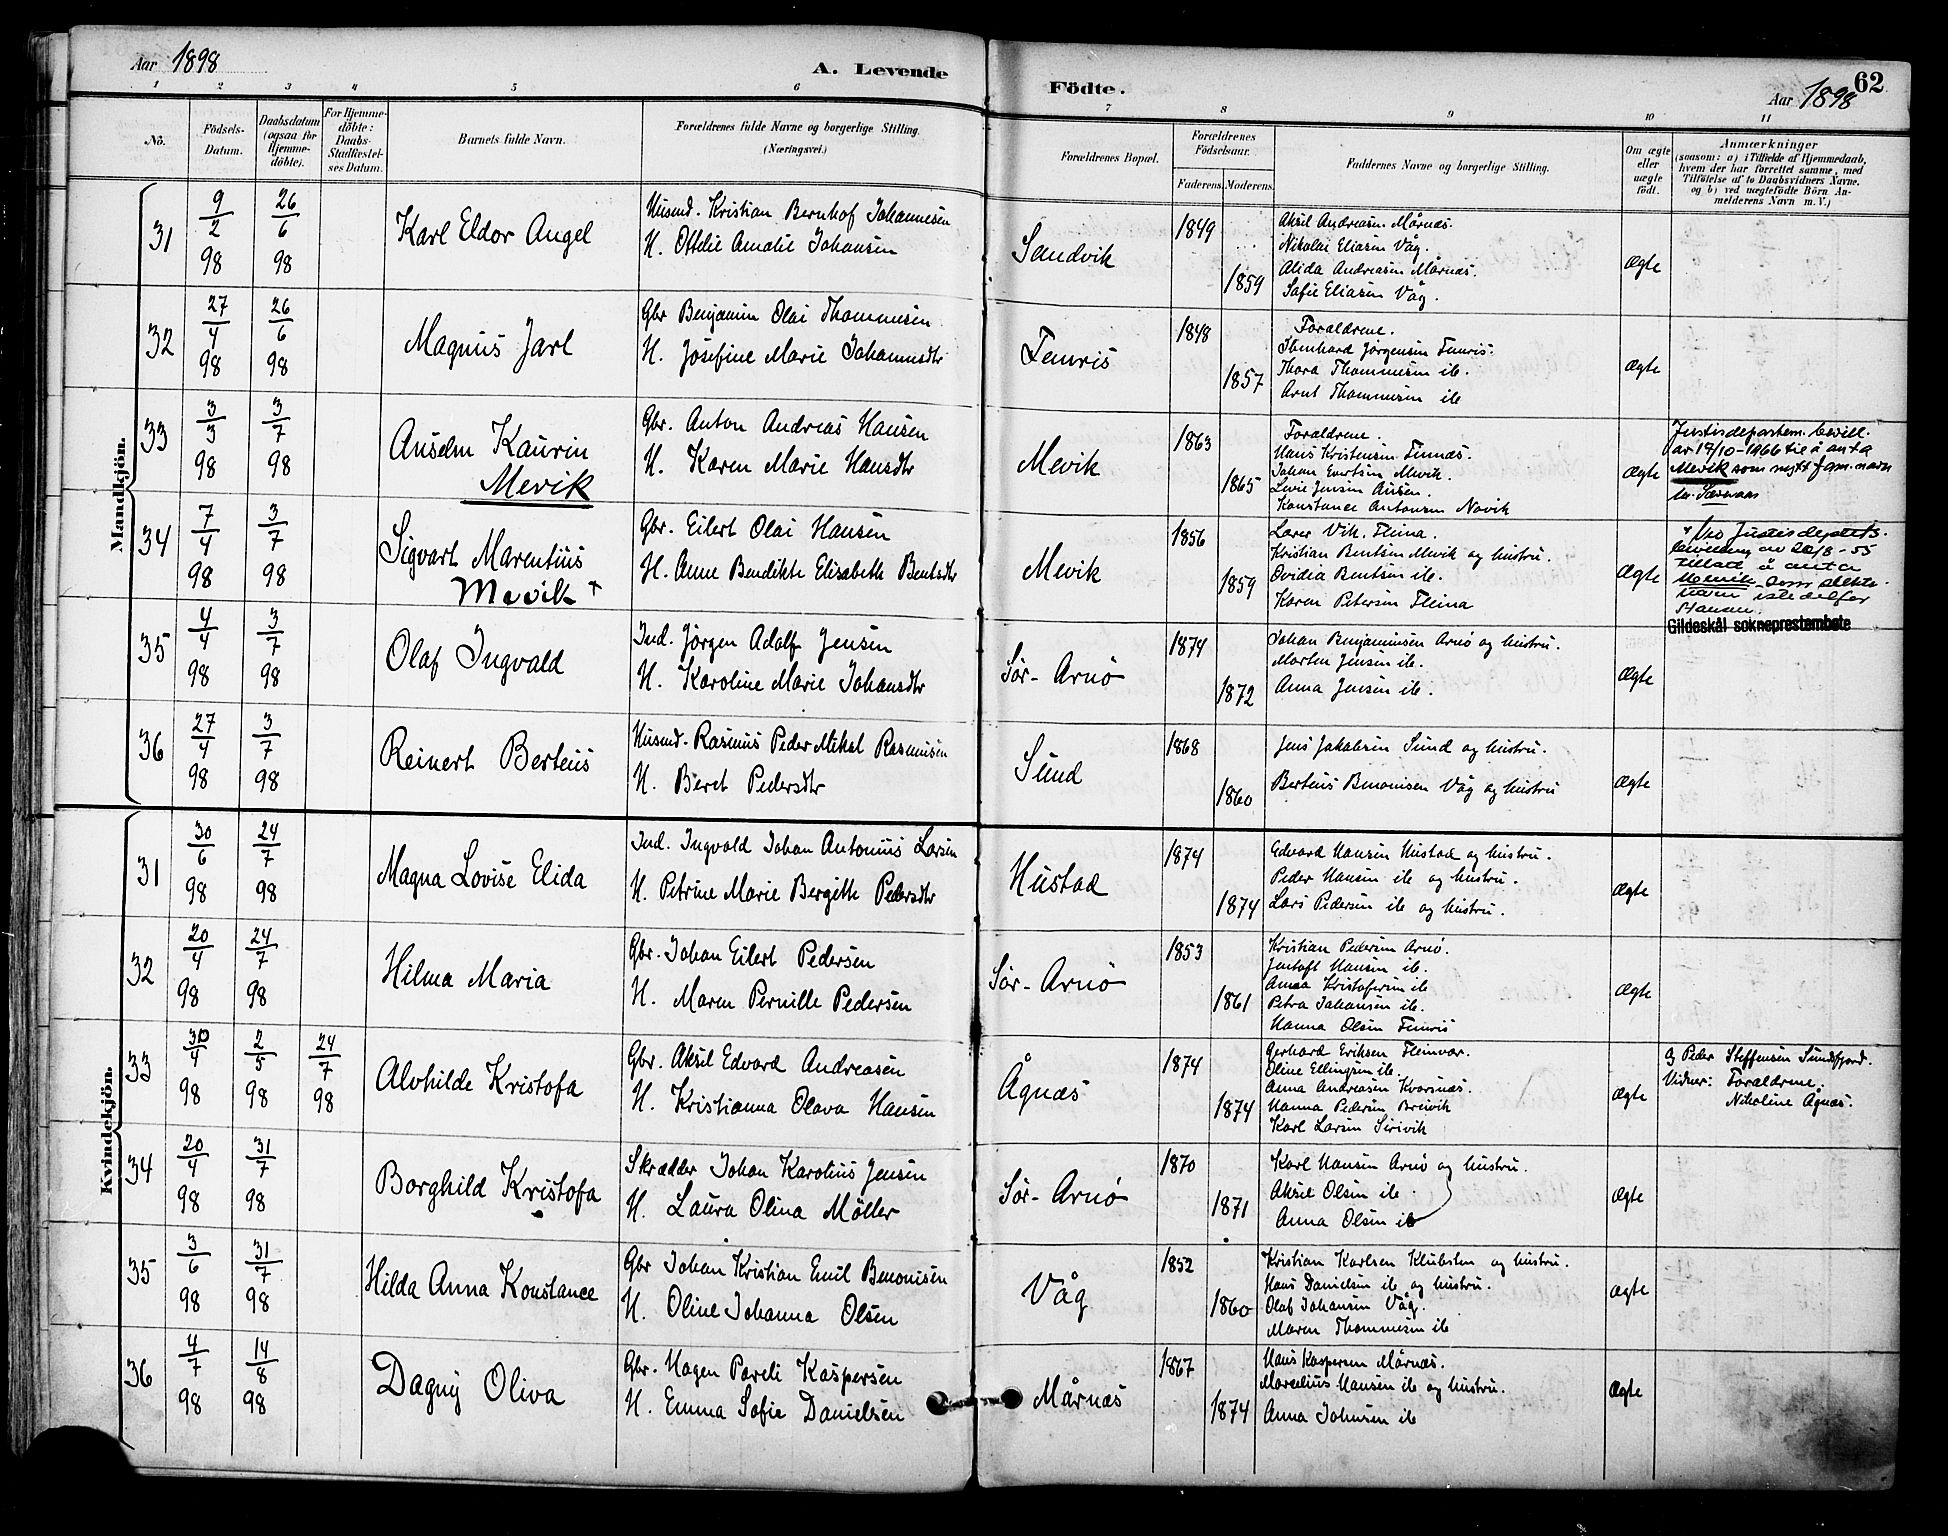 Aar 1898
A. Levende
1 2 3 4 5 6
No.
Födsels-Datum.
Daabsdatum (ogsaa for Hjemmedöbte).
For Hjemmedöbte: Daabs-Stadfæstelses Datum.
Barnets fulde Navn.
Forældrenes fulde Navne og borgerlige Stilling. (Næringsvei.)
Födte.
62
Aar 1898
7 8 9 10 11
Forældrenes Bopæl.
Forældrenes Födselsaar.
Faderens. Moderens.
Faddernes Navne og borgerlige Stilling.
Om ægte eller uægte födt.
Anmærkninger
(saasom: a) i Tilfælde af Hjemmedaab,
hvem der har forrettet samme, med
Tilföielse af to Daabsvidners Navne,
og b) ved uægtefödte Börn An-
melderens Navn m. V.)
Mandkjön.
31
9/2 98
26/6 98
Karl Eldor Angel
Husmd. Kristian Bernhof Johannesen
H. Ottelie Amalie Johansen
Sandvik
1849
1859
Aksel Andreasen Mårnæs.
Nikolai Eliasen Våg.
Alida Andreasen Mårnæs.
Sofie Eliasen Våg.
Ægte
32
27/4 98
26/6 98
Magnus Jarl
Gbr Benjamin Olai Thommesen
H. Josefine Marie Johannesdtr
Fenris
1848
1857
Forældrene.
Jørgensen Fenris.
Thora Thommesen ib.
Arnt Thommesen ib
Ægte
33
3/3 98
3/7 98
Anselm Kaurin
Mevik
Gbr. Anton Andreas Hansen
H. Karen Marie Hansdtr
Mevik
1863
1865
Forældrene.
Hans Kristensen Finnæs.
Johan Evertsen Mevik.
Konstance Antonsen Novik
Ægte
Justisdepartem. bevill.
av 19/10-1966 til å anta
Mevik som nytt fam.navn
34
7/4 98
3/7 98
Sigvart Marentius
Mevik +
Gbr. Eilert Olai Hansen
H. Anne Bendikte Elisabeth Bentsdtr
Mevik
1856
1859
Lærer Vik. Fleina.
Kristian Bentsen Mevik og hustru.
Ovidia Bentsen ib.
Karen Petersen Fleina
Ægte
+ Ved Justisdeptets.
bevilling av 22/8-55
tillatt å anta
Mevik som slekts-
navn istedetfor
Hansen.
Gildeskål sokneprestembete
35
4/4 98
3/7 98
Olaf Ingvald
Ind. Jørgen Adolf Jensen
H. Karoline Marie Johansdtr
Sør-Arnø
1874
1872
Johan Benjaminsen Arnø og hustru.
Morten Jensen ib.
Anna Jensen ib.
Ægte
36
27/4 98
3/7 98
Reinert Berteus
Husmd. Rasmus Peder Mikal Rasmusen
H. Beret Pedersdtr
Sund
1868
1860
Jens Jakobsen Sund og hustru.
Berteus Benonisen Våg og hustru
Ægte
Kvindekjön.
31
30/6 98
24/7 98
Magna Lovise Elida
Ind. Ingvald Johan Antonius Larsen
H. Petrine Marie Bergitte Pedersdtr
Hustad
1874
1874
Edvard Hansen Hustad og hustru.
Peder Hansen ib og hustru.
Lars Pedersen ib og hustru.
Ægte
32
20/4 98
24/7 98
Hilma Maria
Gbr. Johan Eilert Pedersen
H. Maren Pernille Pedersen
Sør-Arnø
1853
1861
Kristian Pedersen Arnø.
Jentoft Hansen ib.
Anna Kristofersen ib
Petra Johansen ib.
Hanna Olsen Fenris
Ægte
33
30/4 98
2/5 98
24/7 98
Alvhilde Kristofa
Gbr. Aksel Edvard Andreasen
H. Kristianna Olava Hansen
Ågnæs
1874
1874
Gerhard Eriksen Fleinvær.
Oline Ellingsen ib.
Anna Andreasen Kvarsnæs.
Hanna Pedersen Breivik
Karl Larsen Serivik
Ægte
Af Peder Steffensen Sundsfjord.
Vidner: Forældrene.
Nikoline Ågnæs.
34
20/4 98
31/7 98
Borghild Kristofa
Skrædder Johan Karolius Jensen
H. Laura Olina Möller
Sør-Arnø
1870
1871
Karl Hansen Arnø og hustru.
Aksel Olsen ib.
Anna Olsen ib
Ægte
35
3/6 98
31/7 98
Hilda Anna Konstance
Gbr Johan Kristian Emil Benonisen
H. Oline Johanna Olsen
Våg
1852
1860
Kristian Karlsen Klubsten og hustru.
Hans Danielsen ib og hustru.
Olaf Johansen Våg.
Maren Thommesen ib
Ægte
36
4/7 98
14/8 98
Dagny Oliva
Gbr. Hagen Pareli Kaspersen
H. Emma Sofie Danielsen
Mårnæs
1867
1874
Hans Kaspersen Mårnæs.
Marcelius Hansen ib og hustru.
Anna Johnsen ib
Ægte